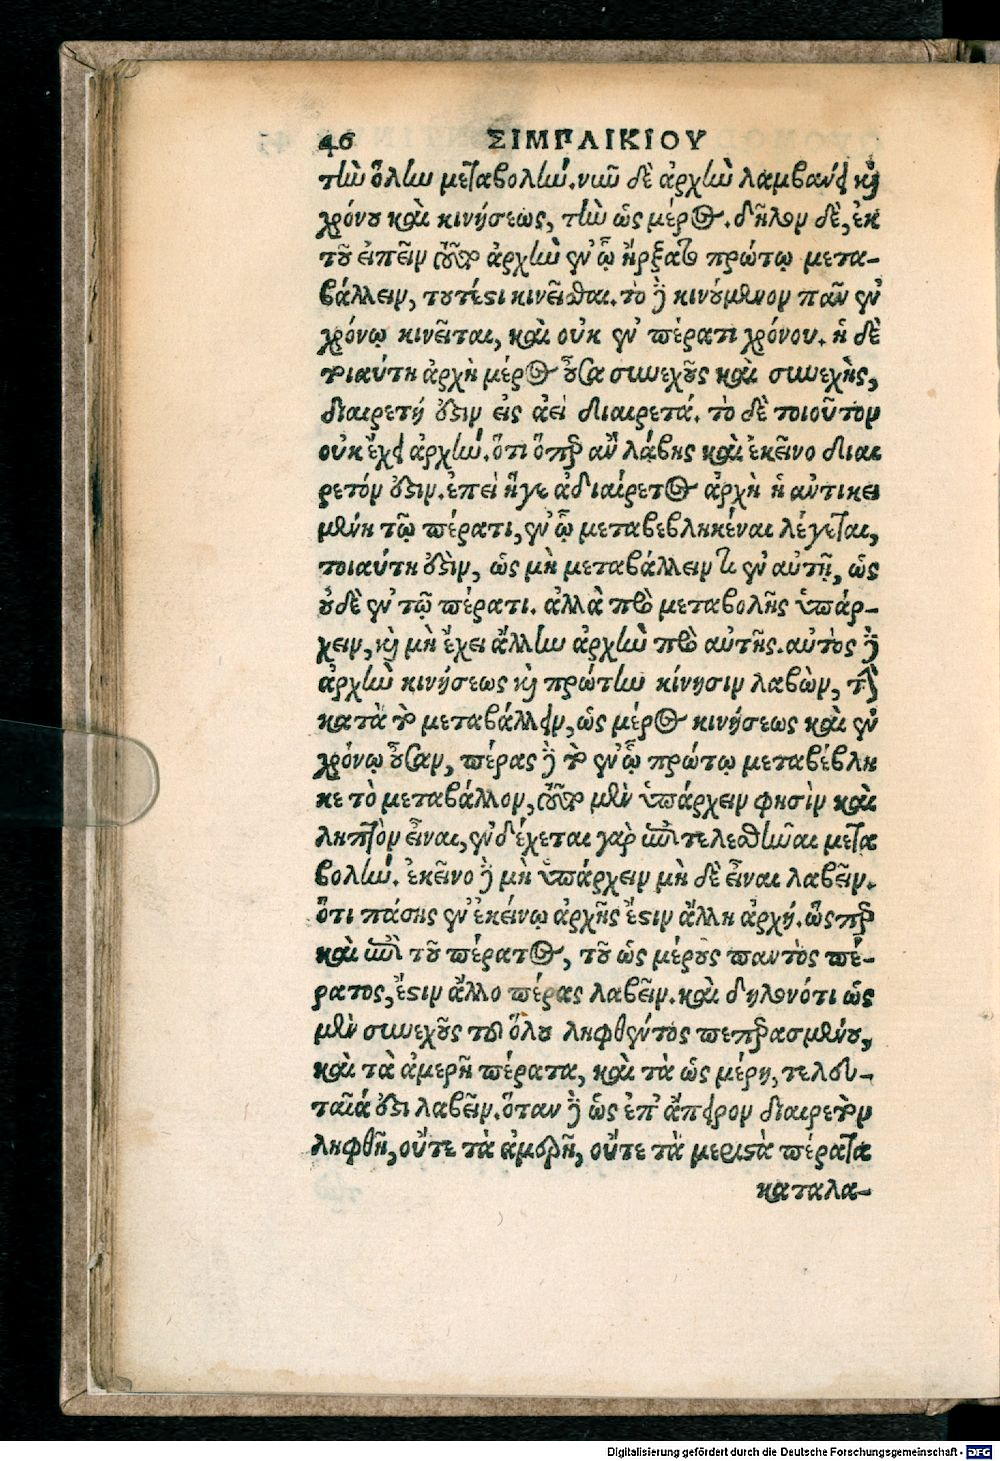 46 ΣΙΜΠΛΙΚΙΟΥ
τὴν ὅλην μεταβολήν. νῦν δὲ ἀρχὴν λαμβάνει καὶ
χρόνου καὶ κινήσεως, τὴν ὡς μέρος. δῆλον δὲ, ἐκ
τοῦ εἰπεῖν αὐτὸν ἀρχὴν ἐν ᾧ ἤρξατο πρώτῳ μετα-
βάλλειν, τουτέστι κινεῖσθαι. τὸ γὰρ κινούμενον πᾶν ἐν
χρόνῳ κινεῖται, καὶ οὐκ ἐν πέρατι χρόνου. ἡ δὲ
τοιαύτη ἀρχὴ μέρος οὖσα συνεχοῦς καὶ συνεχὴς,
διαιρετή ἐστιν εἰς ἀεὶ διαιρετά. τὸ δὲ τοιοῦτον
οὐκ ἔχει ἀρχήν. ὅτι ὅπερ ἂν λάβῃς καὶ ἐκεῖνο διαι
ρετόν ἐστιν. ἐπεὶ ἥγε ἀδιαίρετος ἀρχὴ ἡ ἀντικει
μένη τῷ πέρατι, ἐν ᾧ μεταβεβληκέναι λέγεται,
τοιαύτη ἐστὶν, ὡς μὴ μεταβάλλειν τι ἐν αὐτῇ, ὡς
οὐδὲ ἐν τῷ πέρατι. ἀλλὰ πρὸ μεταβολῆς ὑπάρ-
χειν, καὶ μὴ ἔχει ἄλλην ἀρχὴν πρὸ αὐτῆς. αὐτὸς γὰρ
ἀρχὴν κινήσεως καὶ πρώτην κίνησιν λαβὼν, τὴν
κατὰ τὸ μεταβάλλειν, ὡς μέρος κινήσεως καὶ ἐν
χρόνῳ οὖσαν, πέρας γὰρ τὸ ἐν ᾧ πρώτῳ μεταβέβλη
κε τὸ μεταβάλλον, αὐτὸ μὲν ὑπάρχειν φησὶν καὶ
ληπτὸν εἶναι, ἐνδέχεται γὰρ ἐπιτελεσθῆναι μετα
βολήν. ἐκεῖνο γὰρ μὴ ὑπάρχειν μὴ δὲ εἶναι λαβεῖν.
ὅτι πάσης ἐν ἐκείνῳ ἀρχῆς ἔστιν ἄλλη ἀρχή. ὥσπερ
καὶ ἐπὶ τοῦ πέρατος, τοῦ ὡς μέρους παντὸς πέ-
ρατος, ἔστιν ἄλλο πέρας λαβεῖν. καὶ δηλονότι ὡς
μὲν συνεχοῦς τοῦ ὅλου ληφθέντος πεπερασμένου,
καὶ τὰ ἀμερῆ πέρατα, καὶ τὰ ὡς μέρη, τελευ-
ταῖά ἐστι λαβεῖν. ὅταν γὰρ ὡς ἐπ' ἄπειρον διαιρετὸν
ληφθῇ, οὔτε τὰ ἀμερῆ, οὔτε τὰ μεριστὰ πέρατα
καταλα-
Digitalisierung gefördert durch die Deutsche Forschungsgemeinschaft - DFG